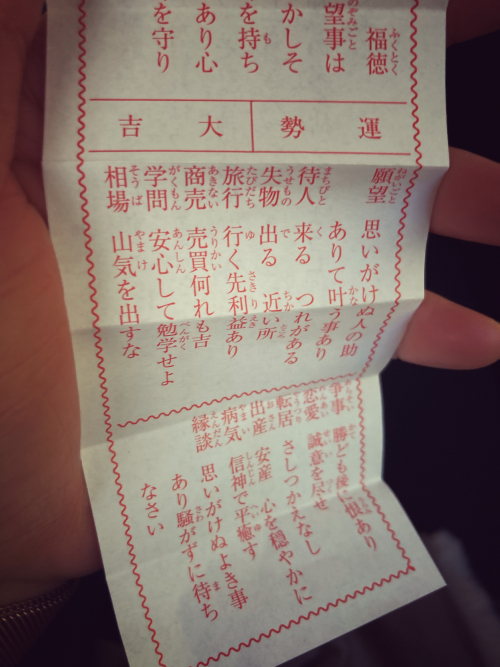 福徳
望事は
かしそ
を持ち
あり心
を守り
運勢 大吉
願望 思いがけぬ人の助
ありて叶う事あり
待人 来る つれがある
失物 出る 近い所
旅行 行く先利益あり
商売 売買何れも吉
学問 安心して勉学せよ
相場 山気を出すな
争事 勝ども後に恨あり
恋愛 誠意を尽せ
転居 さしつかえなし
出産 安産 心を穏やかに
病気 信神で平癒す
縁談 思いがけぬよき事
あり騒がずに待ち
なさい